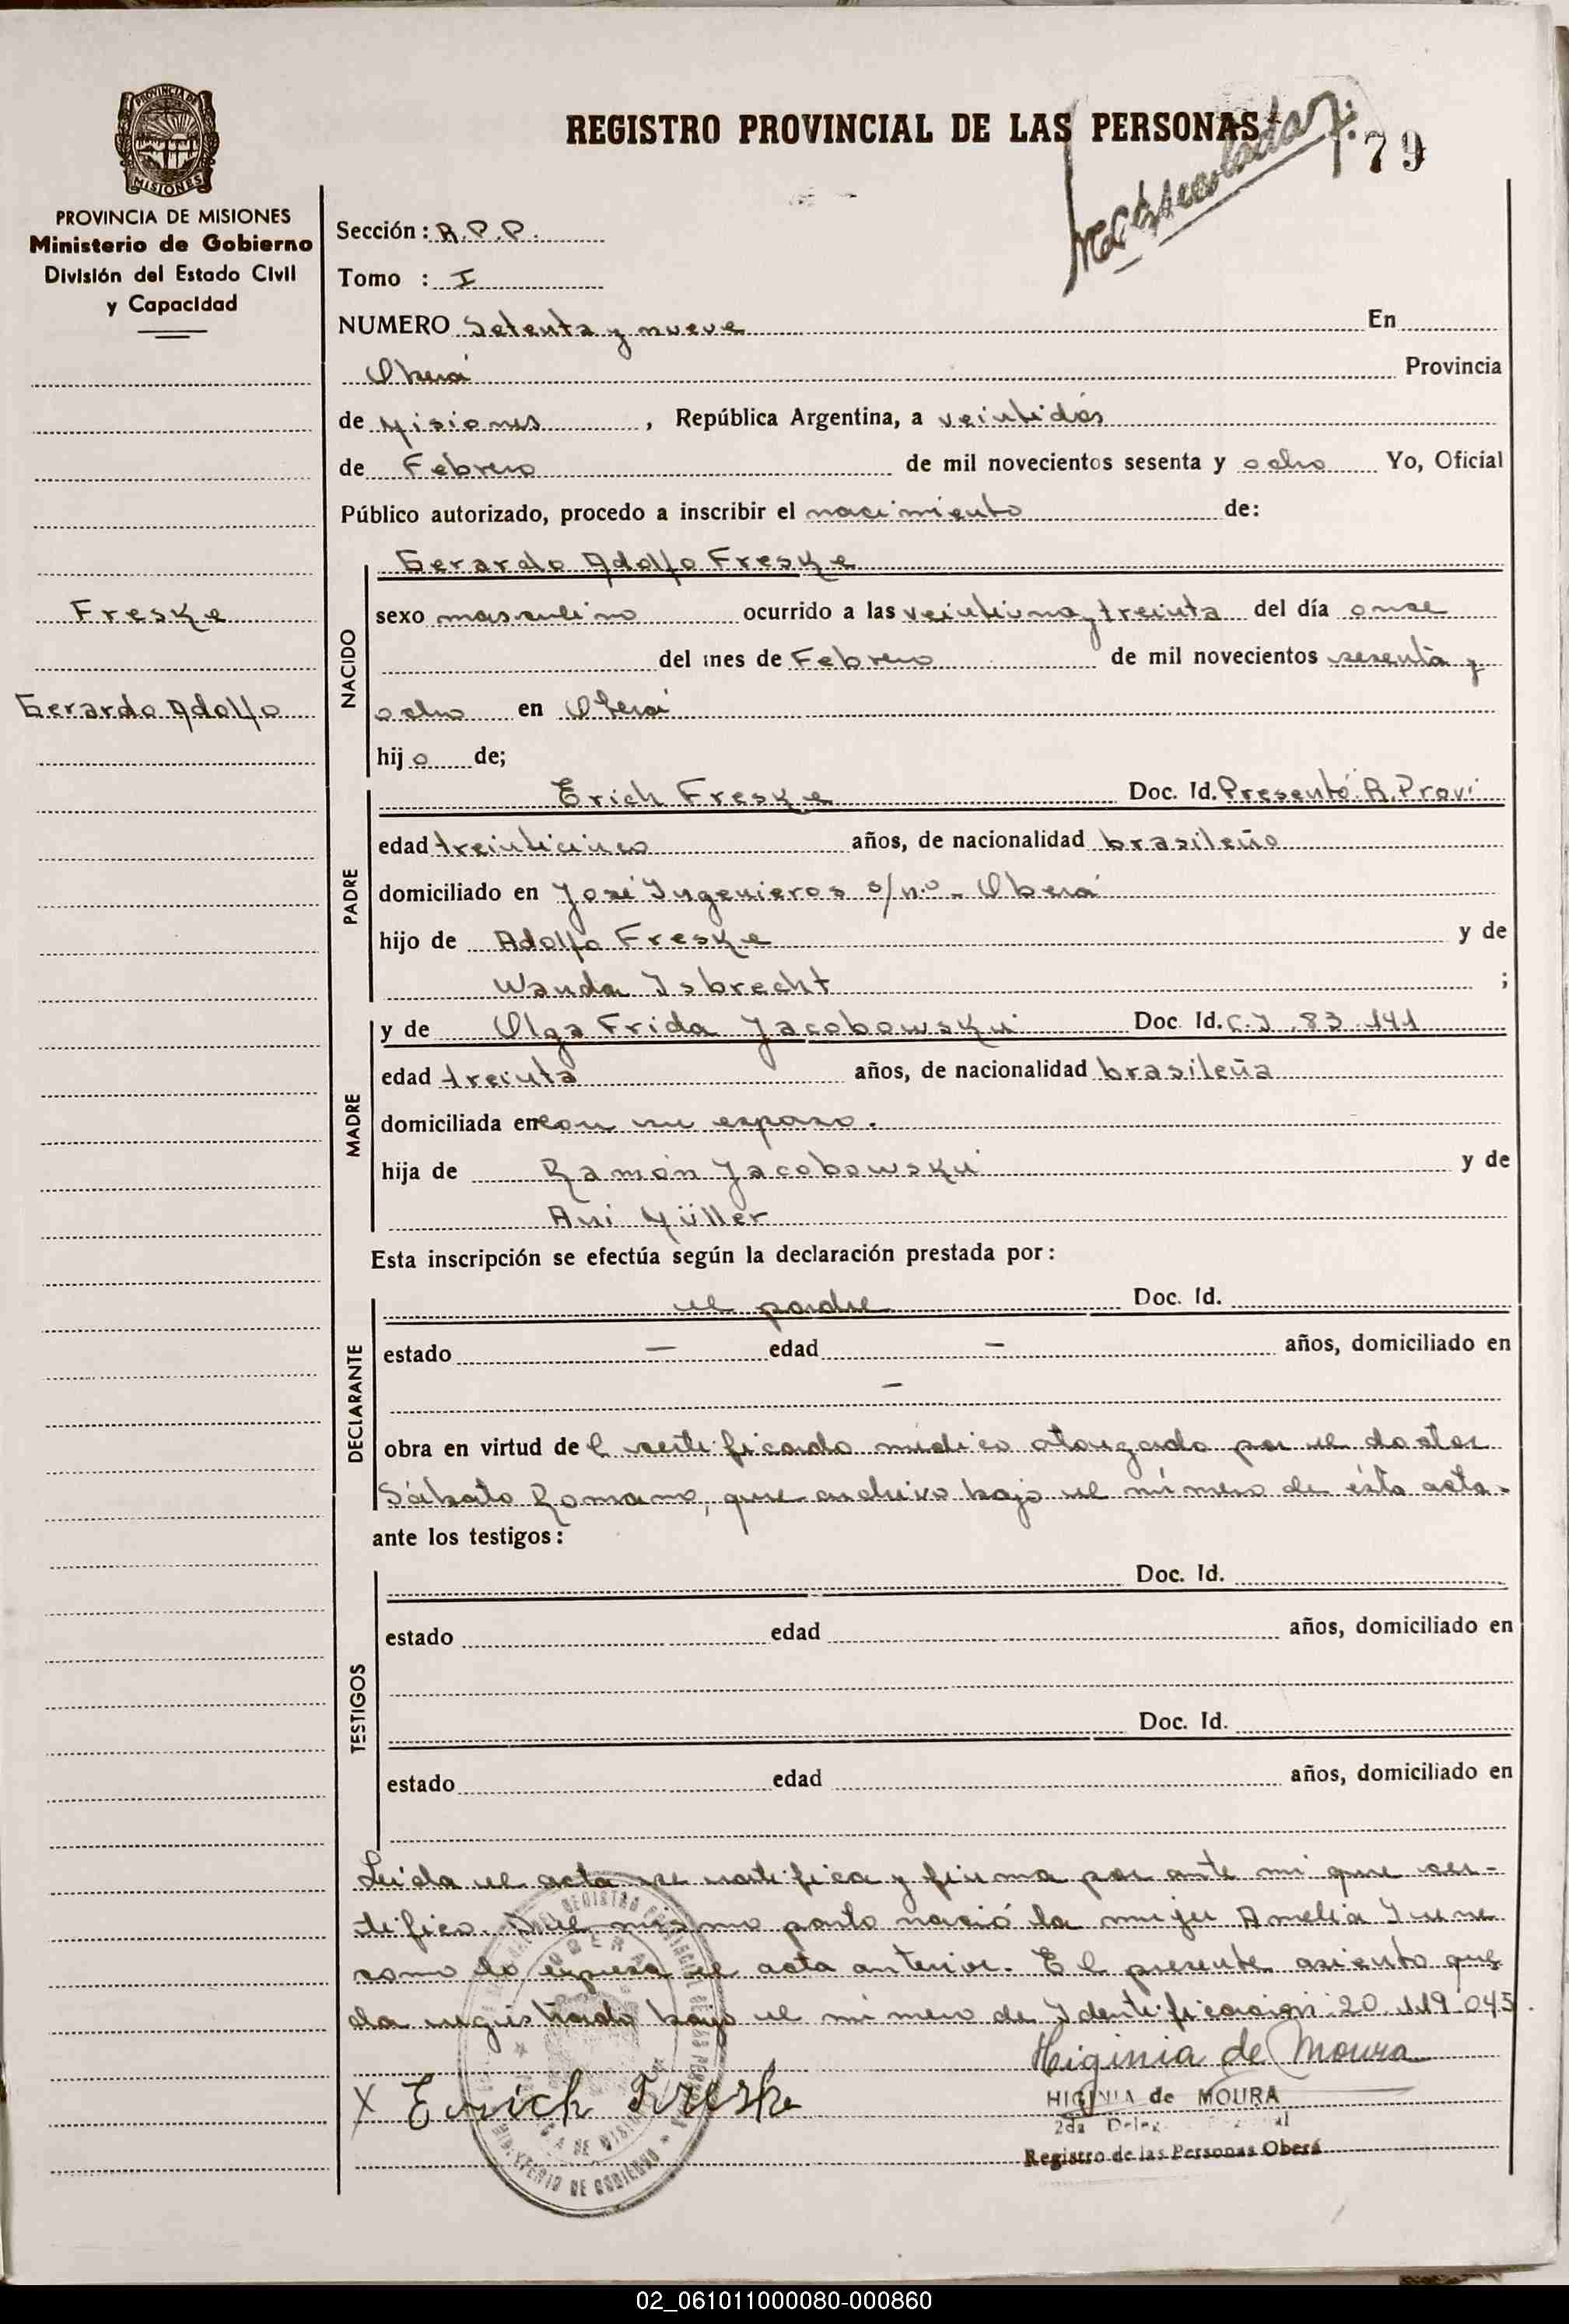 REGISTRO PROVINCIAL DE LAS PERSONAS
79
PROVINCIA DE
MISIONES
PROVINCIA DE MISIONES
Ministerio de Gobierno
División del Estado Civil
y Capacidad
Freske
Gerardo Adolfo
Sección: R.P.P.
Tomo : I
NUMERO Setenta y nueve En
Oberá Provincia
de Misiones , República Argentina, a veintidós
de Febrero de mil novecientos sesenta y ocho Yo, Oficial
Público autorizado, procedo a inscribir el nacimiento de:
NACIDO
Gerardo Adolfo Freske
sexo masculino ocurrido a las veintiuna y treinta del día onse
del mes de Febrero de mil novecientos sesenta y
ocho en Oberá
hijo de;
PADRE
Erich Freske Doc. Id. Presentó R. Provi
edad treinticinco años, de nacionalidad brasileño
domiciliado en José Ingenieros s/n.o - Oberá
hijo de Adolfo Freske y de
Wanda Isbrecht ;
MADRE
y de Olga Frida Jacobowski Doc Id. C.I. 83.141
edad treinta años, de nacionalidad brasileña
domiciliada en con su esposo.
hija de Ramón Jacobowski y de
Ani Müller
Esta inscripción se efectúa según la declaración prestada por:
DECLARANTE
el padre Doc. Id.
estado — edad — años, domiciliado en
—
obra en virtud de l certificado médico otorgado por el doctor
Sábato Romano, que archivo bajo el número de ésta acta.
ante los testigos:
TESTIGOS
Doc. Id.
estado edad años, domiciliado en
Doc. Id.
estado edad años, domiciliado en
Leída el acta se ratifica y firma por ante mi que cer-
tifico. Del mismo parto nació la mujer Amelia Irene
como lo expresa el acta anterior. El presente asiento que
da registrado bajo el número de Identificación 20.119.045.
Higinia de Moura
X Erich Freske
HIGINIA de MOURA
2da Deleg.
Registro de las Personas Oberá
02_061011000080-000860